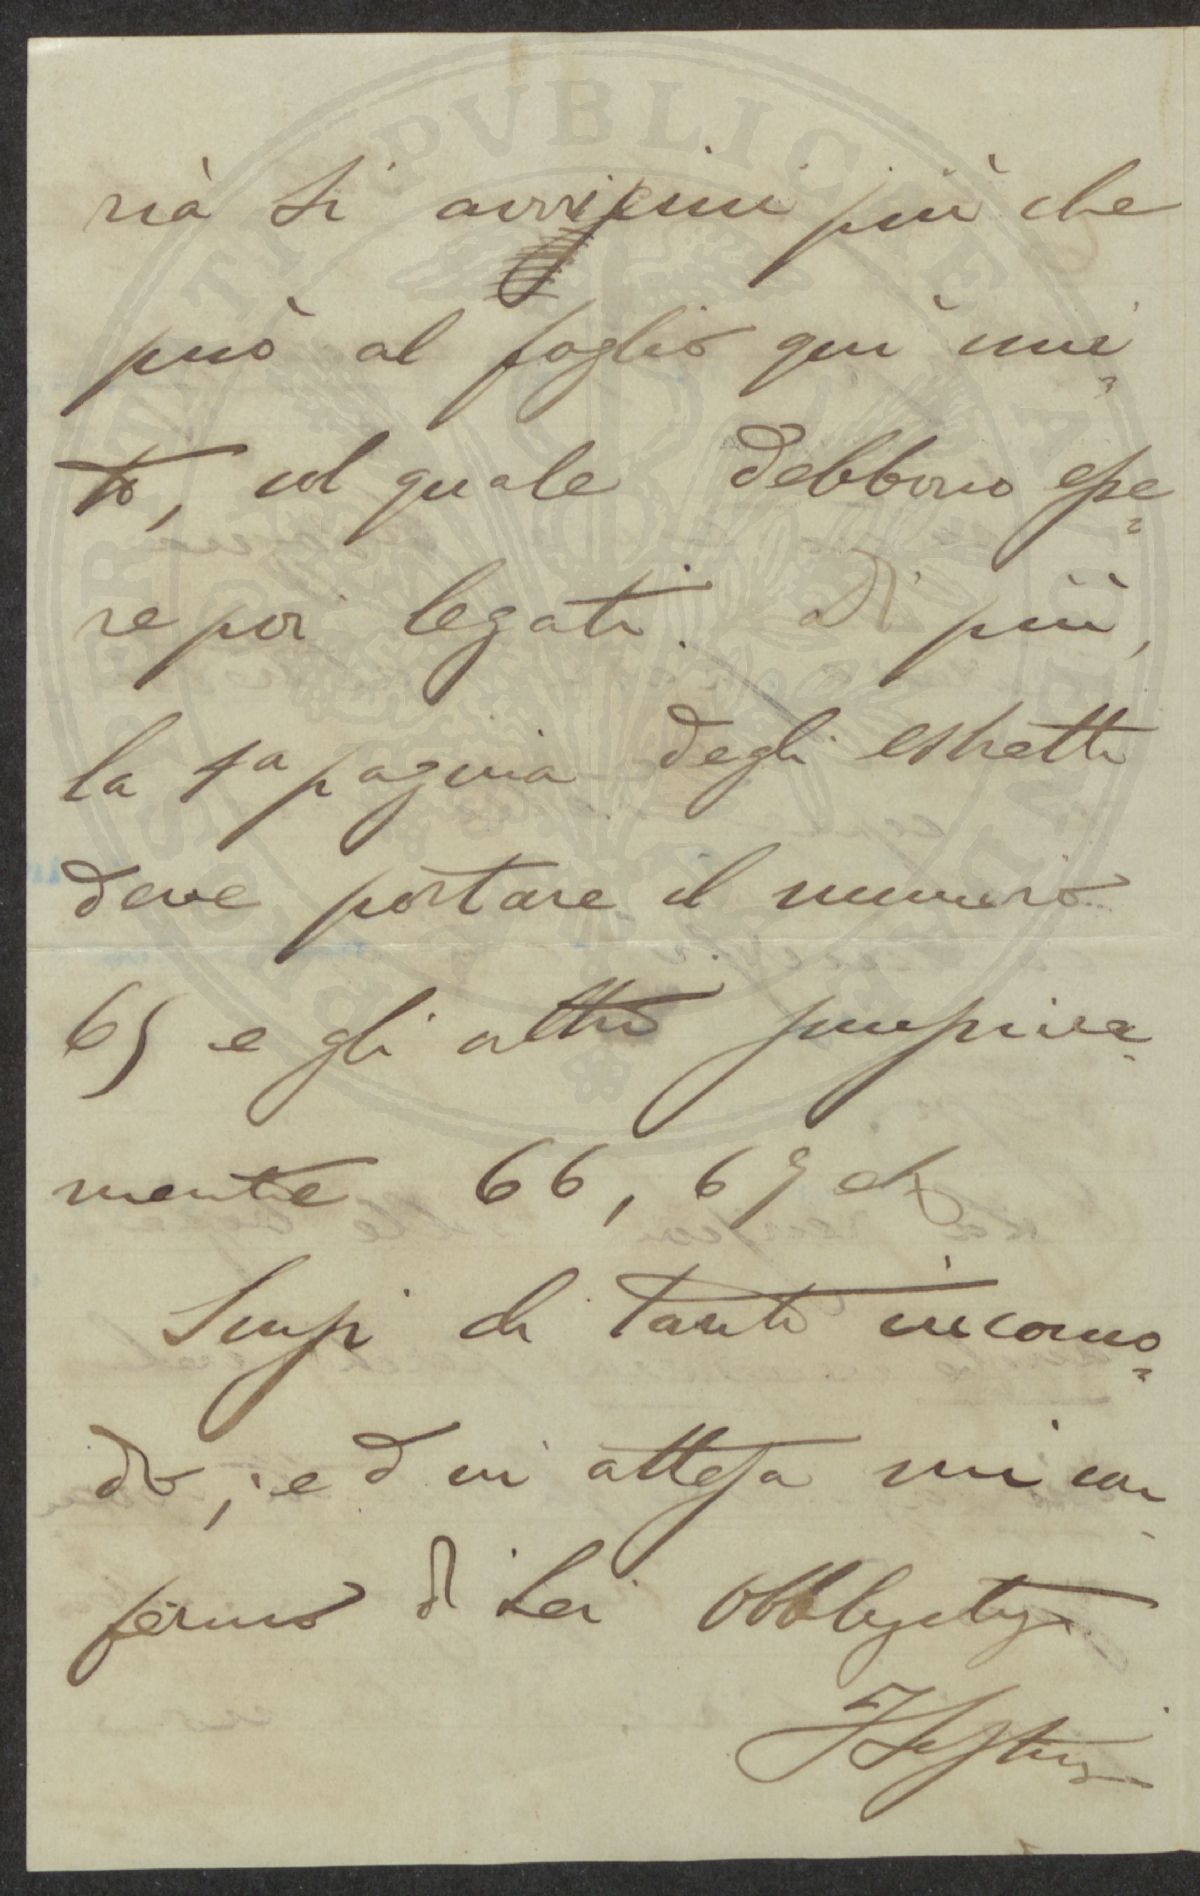 rià si avvicini più che
può al foglio quì uni=
to, col quale debbono esse=
re poi legati. Di più,
la 1a pagina degli estratti
deve portare il numero
65 e gli altri successiva-
mente 66, 67 etc
Scusi di tanto incomo=
do; ed in attesa mi con-
fermo di Lei